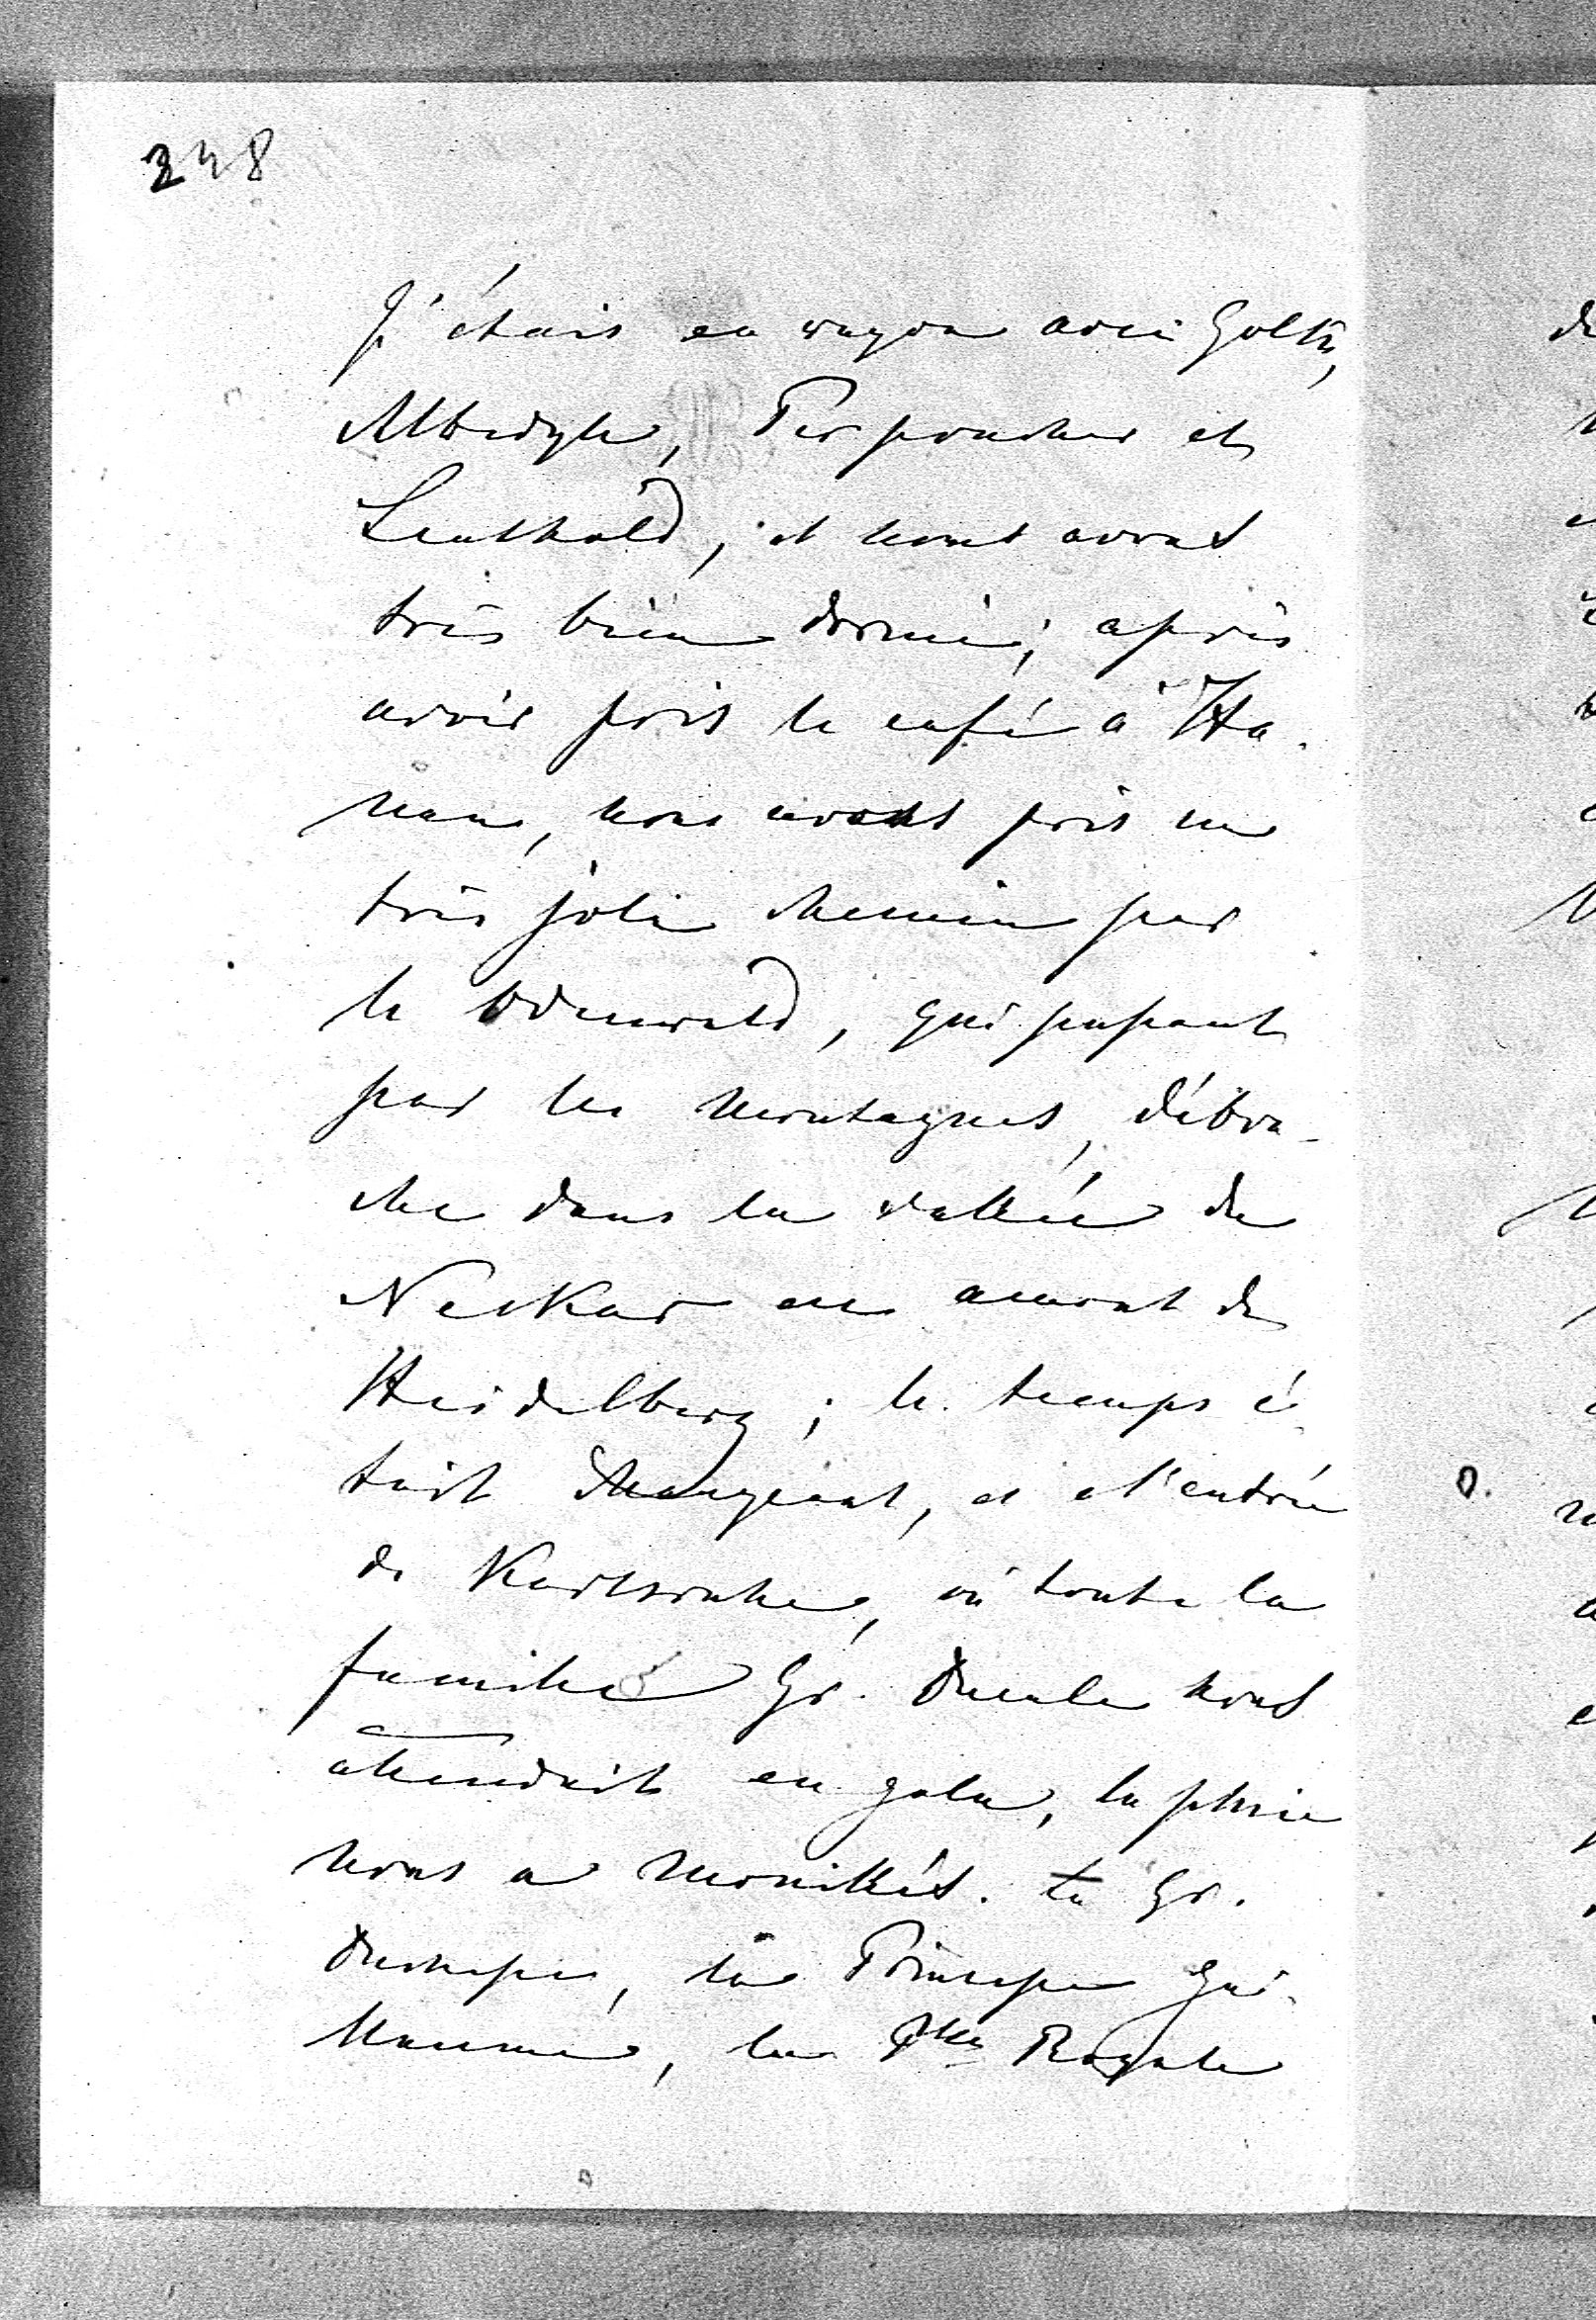 248
J'étais en wagon avec Goltz,
Albedyll, Perponcher et
Leuthold, et nous avons
très bien dormi; après
avoir pris le café à Ha-
nau, nous avons pris un
très joli chemin par
le Odenwald, qui passant
par les montagnes, débou-
che dans la vallée du
Neckar en amont de
Heidelberg; le temps é-
tait changeant, et à l'entrée
de Karlsruhe, où toute la
famille Gr. Ducale nous
attendait en gala, la pluie
nous a mouillés. La Gr.
Duchesse, la Princesse Gui-
llaume, la Psse Royale